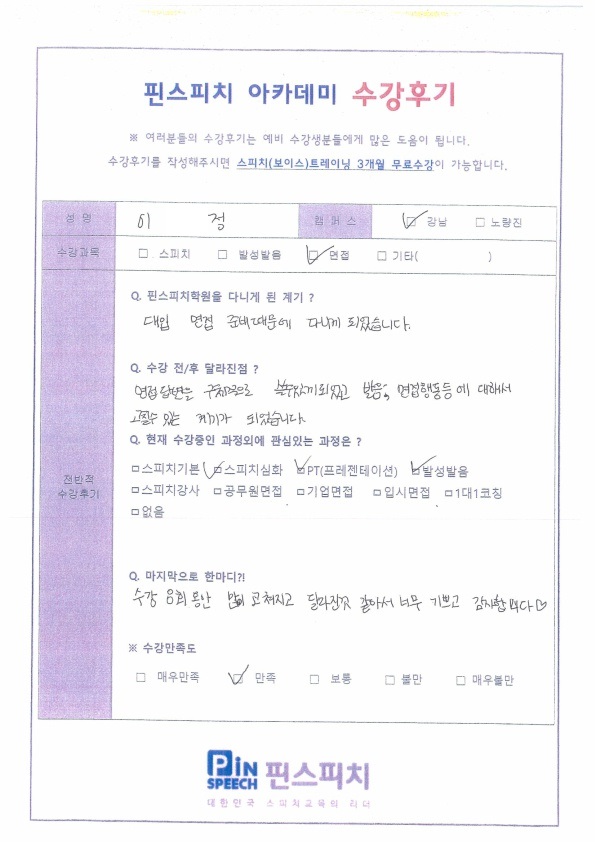 핀스피치 아카데미 수강후기
※ 여러분들의 수강후기는 예비 수강생분들에게 많은 도움이 됩니다.
수강후기를 작성해주시면 스피치(보이스)트레이닝 3개월 무료수강이 가능합니다.
성 명 이 정 캠퍼스 ☑ 강남 □ 노량진
수강과목 □ 스피치 □ 발성발음 ☑ 면접 □ 기타( )
Q. 핀스피치학원을 다니게 된 계기 ?
대입 면접 준비때문에 다니게 되었습니다.
Q. 수강 전/후 달라진점 ?
면접답변을 구체적으로 쓸수있게되었고 발음, 면접행동등에 대해서
고칠수 있는 계기가 되었습니다.
Q. 현재 수강중인 과정외에 관심있는 과정은 ?
전반적
수강후기
□스피치기본 ☑스피치심화 ☑PT(프레젠테이션) ☑발성발음
□스피치강사 □공무원면접 □기업면접 □입시면접 □1대1코칭
□없음
Q. 마지막으로 한마디?!
수강 8회 동안 많이 고쳐지고 달라진것 같아서 너무 기쁘고 감사합니다♡
※ 수강만족도
□ 매우만족 ☑ 만족 □ 보통 □ 불만 □ 매우불만
PiN
SPEECH 핀스피치
대한민국 스피치교육의 리더